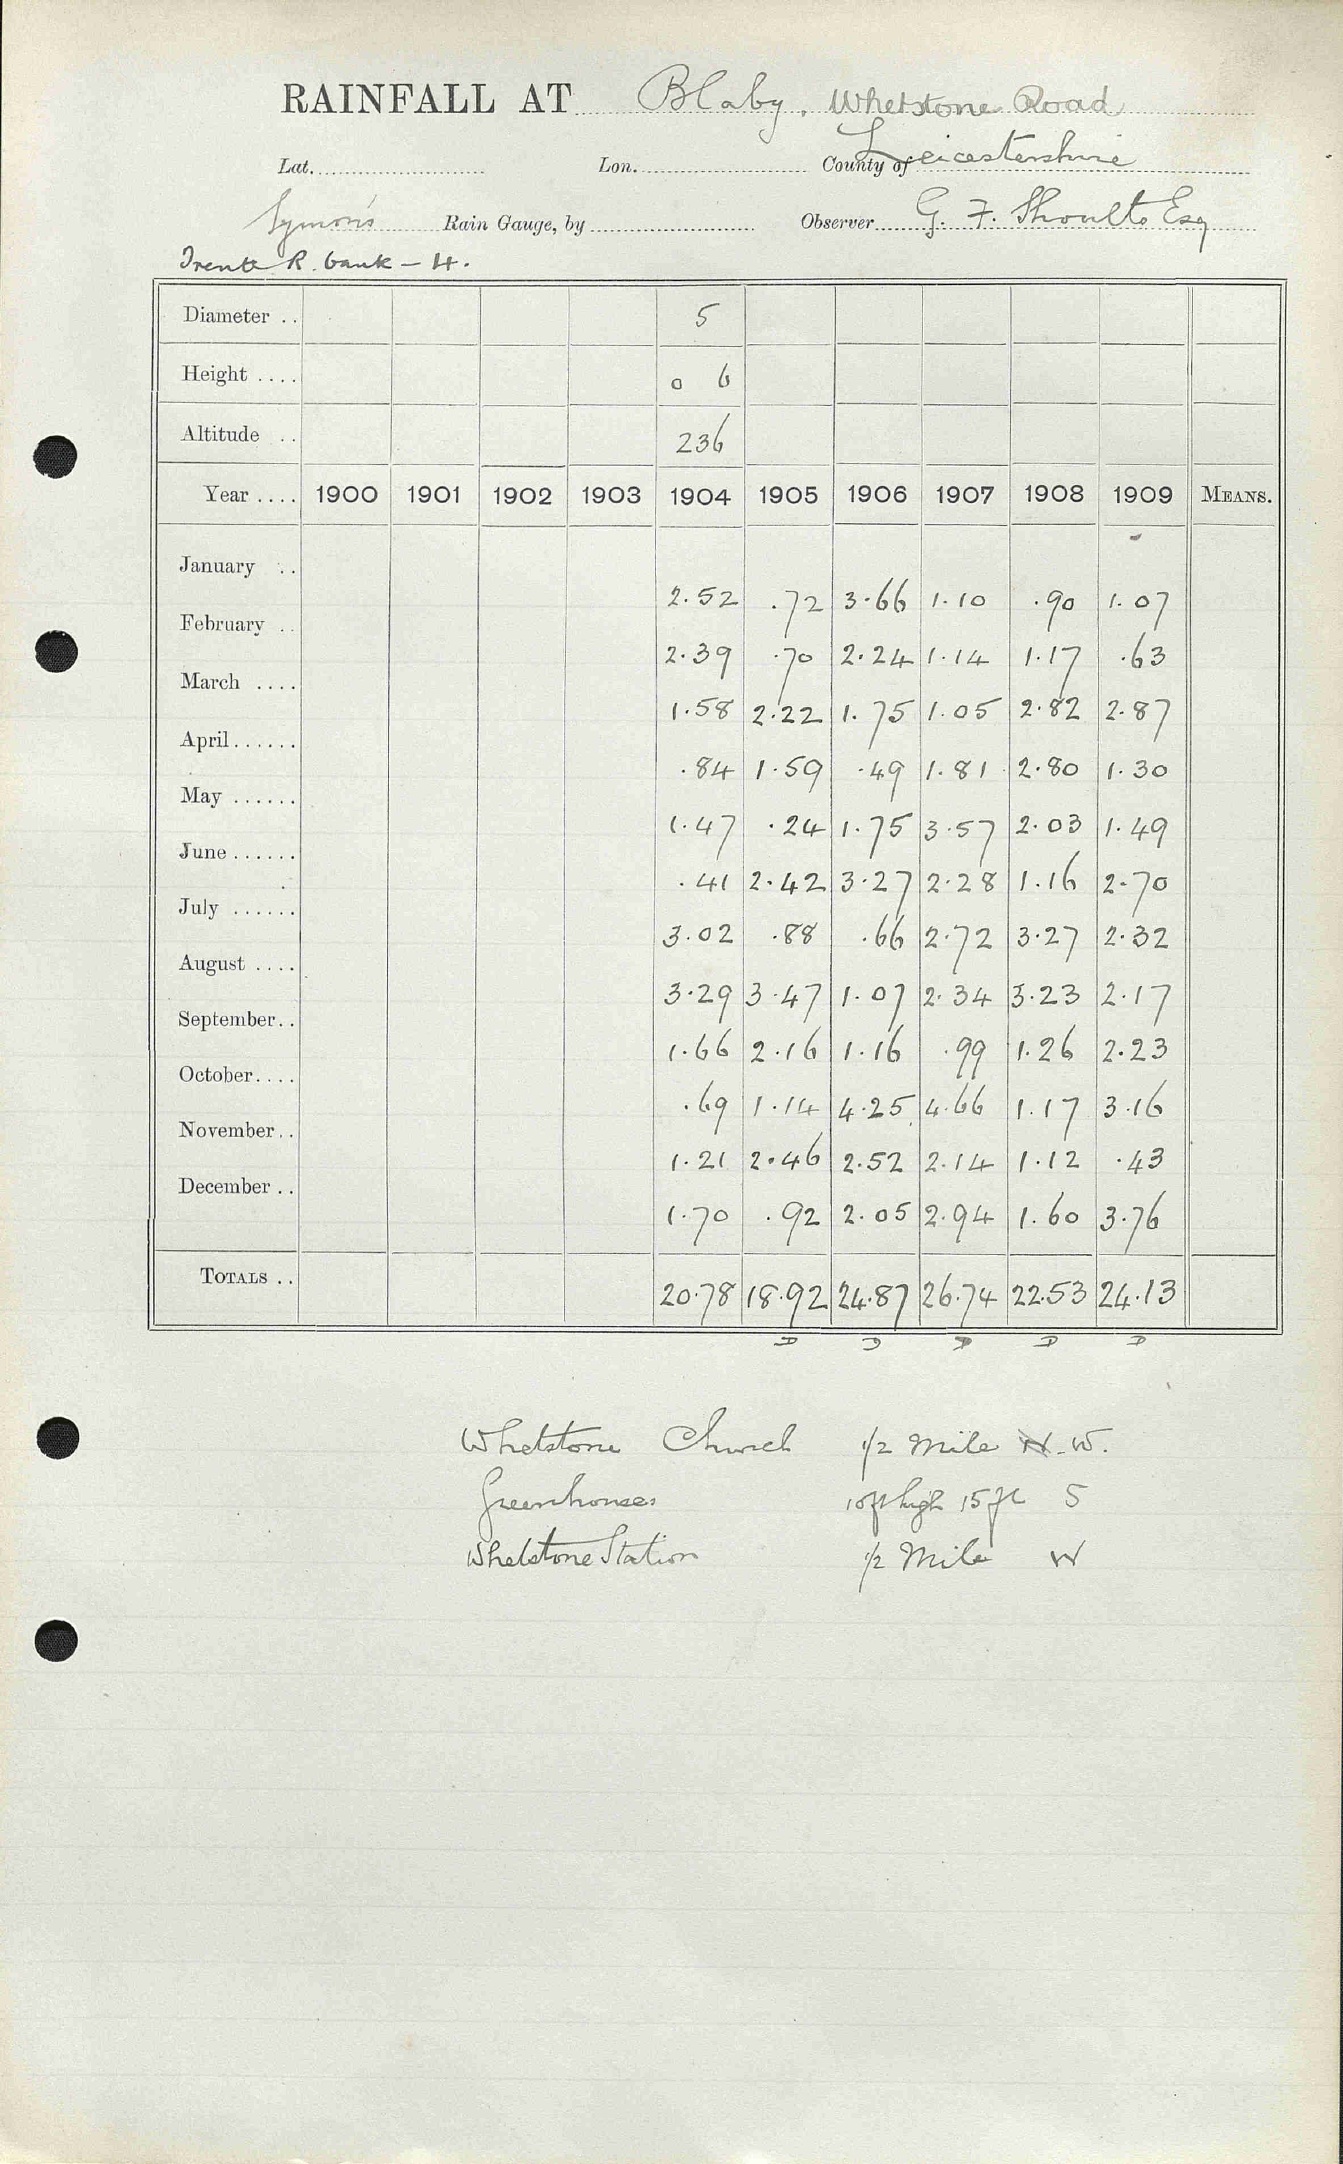 RAINFALL AT Blaby, Whetstone Road
Lat. Lon. County of Leicestershire
Symon's Rain Gauge, by Observer G. F. Shoults Esq
R. bank - 4.
Diameter .. 5
Height .... 0 6
Altitude .. 236
Year .... 1900 1901 1902 1903 1904 1905 1906 1907 1908 1909 MEANS.
January .. 2.52 .72 3.66 1.10 .90 1.07
February .. 2.39 .70 2.24 1.14 1.17 .63
March .... 1.58 2.22 1.75 1.05 2.82 2.87
April...... .84 1.59 .49 1.81 2.80 1.30
May ...... 1.47 .24 1.75 3.57 2.03 1.49
June...... .41 2.42 3.27 2.28 1.16 2.70
July ...... 3.02 .88 .66 2.72 3.27 2.32
August .... 3.29 3.47 1.07 2.34 3.23 2.17
September.. 1.66 2.16 1.16 .99 1.26 2.23
October.... .69 1.14 4.25 4.66 1.17 3.16
November.. 1.21 2.46 2.52 2.14 1.12 .43
December .. 1.70 .92 2.05 2.94 1.60 3.76
TOTALS .. 20.78 18.92 24.87 26.74 22.53 24.13
D D D D D
Whetstone Church 1/2 Mile N.W.
Greenhouses 10ft high 15 ft S
Whetstone Station 1/2 Mile W